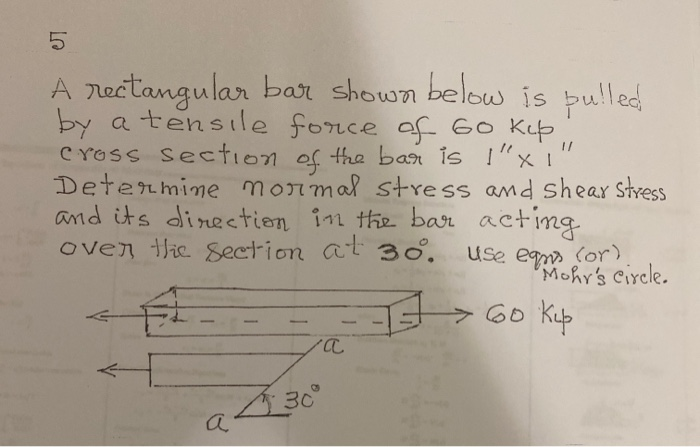 5
A rectangular bar shown below is pulled
by a tensile force of 60 Kip
cross section of the bar is 1" x 1"
Determine normal stress and shear stress
and its direction in the bar acting
over the section at 30°. use eqns (or)
Mohr's circle.
60 Kip
a
30°
a